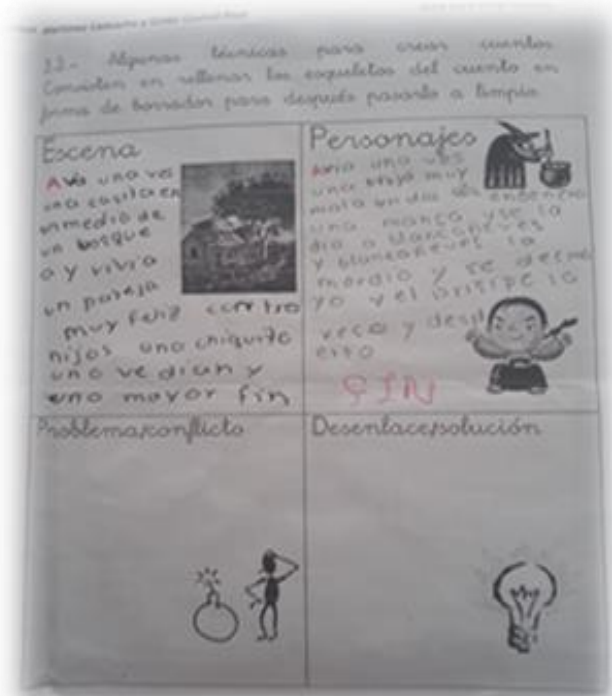 2.2.- Algunas técnicas para crear cuentos
Consisten en rellenar los esqueletos del cuento en
forma de borrador para después pasarlo a limpio
Escena
Avia una ves
una casita en
enmedio de
un bosque
ay vivia
un pareja
muy feliz con tro
hijos uno chiquito
uno vedian y
uno mayor fin
Personajes
Avia una ves
una bruja muy
mala un dia enbeneno
una manca y se la
dio a blancaneves
y blancaneves la
mordio y se desma
yo y el prisipe la
veco y desp
erto
FIN
Problema/conflicto
Desenlace/solución